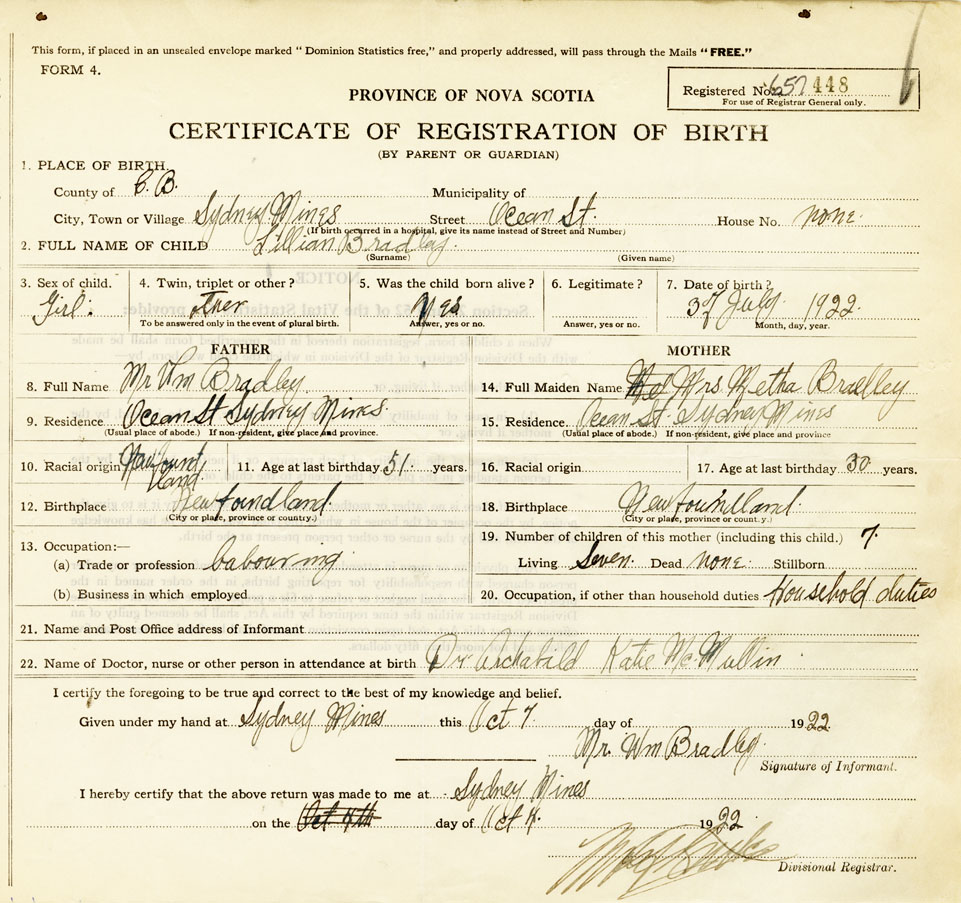 This form, if placed in an unsealed envelope marked "Dominion Statistics free," and properly addressed, will pass through the Mails "FREE."
FORM 4.
Registered No. 657448
For use of Registrar General only.
PROVINCE OF NOVA SCOTIA
CERTIFICATE OF REGISTRATION OF BIRTH
(BY PARENT OR GUARDIAN)
1. PLACE OF BIRTH.
County of C.B. Municipality of
City, Town or Village Sydney Mines Street Ocean St. House No. none.
(If birth occurred in a hospital, give its name instead of Street and Number)
2. FULL NAME OF CHILD Lillian Bradley.
(Surname) (Given name)
3. Sex of child. 4. Twin, triplet or other? 5. Was the child born alive? 6. Legitimate? 7. Date of birth?
Girl: Yes July 1922.
To be answered only in the event of plural birth. Answer, yes or no. Answer, yes or no. Month, day, year.
FATHER MOTHER
8. Full Name Mr Wm Bradley 14. Full Maiden Name Mrs. Metha Bradley
9. Residence Ocean St Sydney Mines. 15. Residence Ocean St. Sydney Mines
(Usual place of abode.) If non-resident, give place and province. (Usual place of abode.) If non-resident, give place and province
10. Racial origin Newfoundland 11. Age at last birthday 51. years. 16. Racial origin 17. Age at last birthday 30 years.
12. Birthplace Newfoundland. 18. Birthplace Newfoundland.
(City or place, province or country.) (City or place, province or county.)
13. Occupation:— 19. Number of children of this mother (including this child.) 7.
(a) Trade or profession Labouring Living Seven. Dead none. Stillborn
(b) Business in which employed 20. Occupation, if other than household duties Household duties
21. Name and Post Office address of Informant
22. Name of Doctor, nurse or other person in attendance at birth Dr Archabald Katie McMullin.
I certify the foregoing to be true and correct to the best of my knowledge and belief.
Given under my hand at Sydney Mines this Oct 7 day of 1922.
Mr. Wm Bradley.
Signature of Informant.
I hereby certify that the above return was made to me at Sydney Mines
on the day of Oct 1922.
Divisional Registrar.